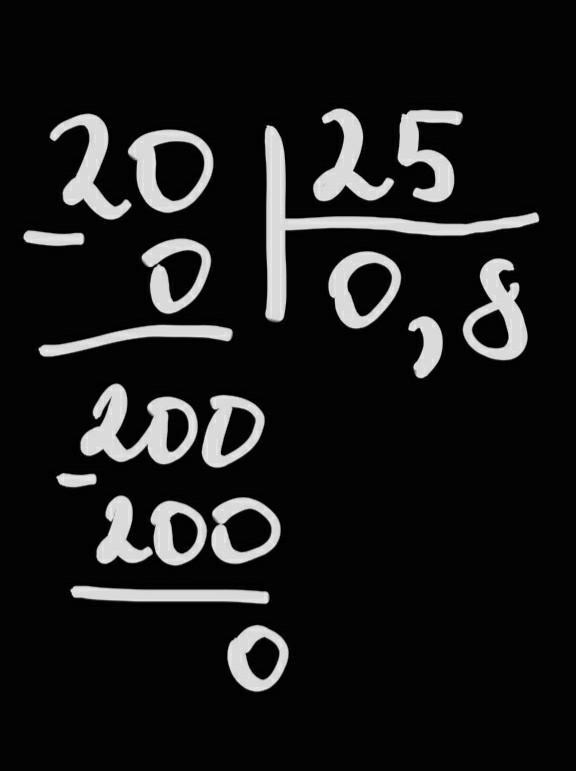 20 | 25
- 0 | 0,8
200
- 200
0